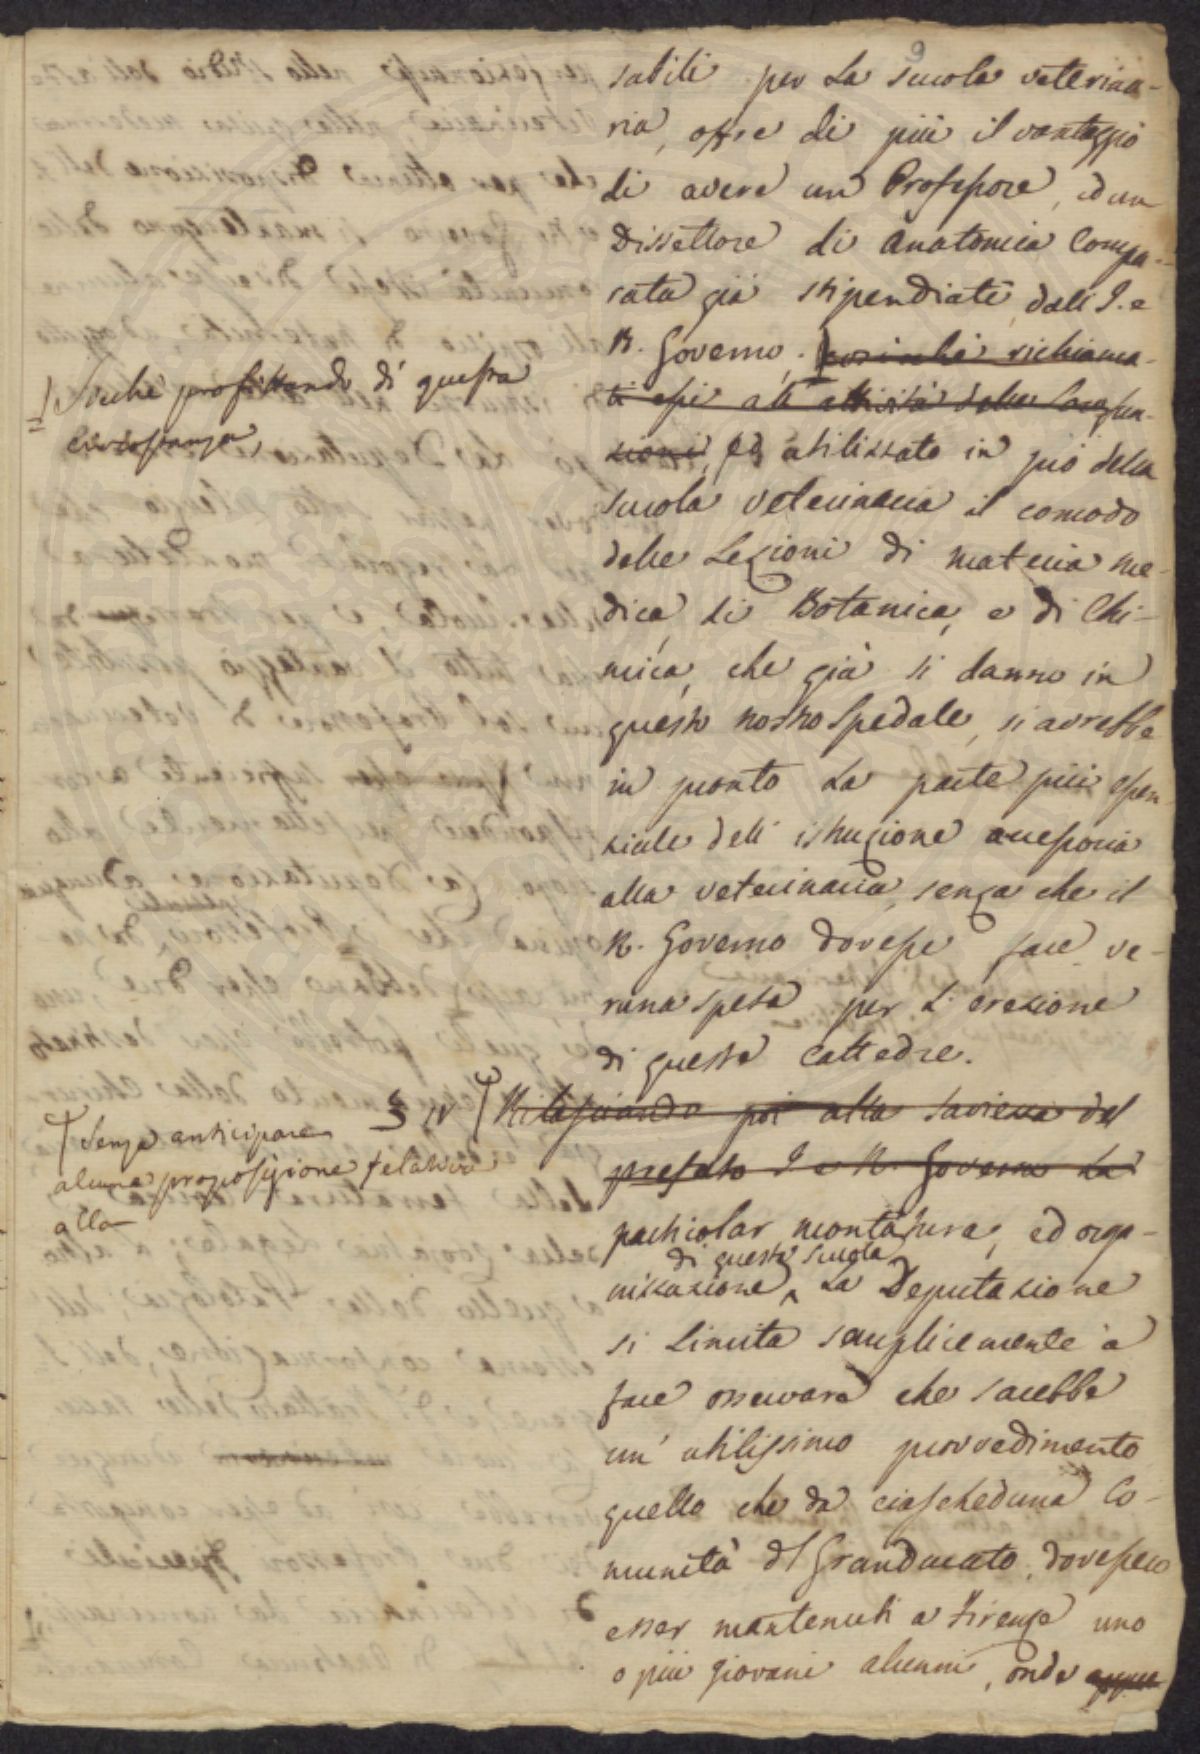 9
sabili per La Scuola veterina-
ria, offre di più il vantaggio
di avere un Professore, ed un
Dissettore di Anatomia Compa-
rata già stipendiati dall' I. e
R. Governo. sicchè richiama-
ti essi all' attività delle Loro fun-
zioni, ed utilizzato in prò della
Scuola veterinaria il comodo
delle Lezioni di materia me-
dica, di Botanica, e di Chi-
mica, che già si danno in
questo nostro Spedale, si avrebbe
in pronto La parte più essen-
ziale dell' istruzione accessoria
alla veterinaria senza che il
R. Governo dovesse fare ve-
runa spesa per L' erezione
di queste Cattedre.
§ IV Rilasciando poi alla Saviezza del
prefato I. e R. Governo La
particolar montatura, ed orga-
di questa Scuola
nizzazione, La Deputazione
si Limita semplicemente a
fare osservare che sarebbe
un' utilissimo provvedimento
quello che da ciascheduna Co-
munità del Granducato dovessero
esser mantenuti a Firenze uno
o più giovani alunni, onde
Sicchè profittando di questa
circostanza,
Senza anticipare
alcuna proposizione relativa
alla